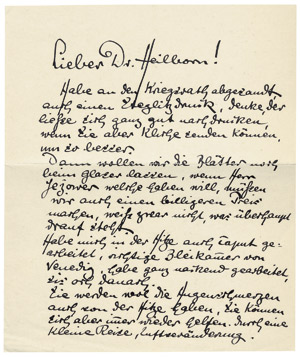 Lieber Dr. Heilborn!
Habe an den Kriegsrath abgesandt
auch einen Steglitzdruck, denke der
ließe sich ganz gut nachdrucken,
wenn Sie aber Klische senden können,
um so besser.
Dann wollen wir die Blätter noch
beim Glaser lassen, wenn Herr
Jezower welche haben will, müssten
wir auch einen billigeren Preis
machen, weiß zwar nicht, was überhaupt
drauf steht.
Habe mich in der Hitze auch caput ge-
arbeitet, richtige Bleikammer von
Venedig, habe ganz nackend gearbeitet,
Sie werden wol die Augenschmerzen
auch von der Hitze haben, Sie können
sich aber immer wieder helfen durch eine
kleine Reise, Luftveränderung.